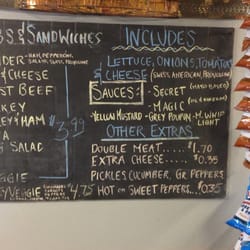 BS & SANDWICHES
HAM, PEPPERONI,
SALAMI, SWISS, PROVOLONE
& CHEESE
ST BEEF
KEY
Y & HAM
$3.99
A
SALAD
GGIE
EY VEGGIE $4.75
INCLUDES
LETTUCE, ONIONS, TOMATOES
& CHEESE (SWISS, AMERICAN, PROVOLONE)
SAUCES: - SECRET
- MAGIC
- YELLOW MUSTARD - GREY POUPON - M. WHIP
LIGHT
OTHER EXTRAS
DOUBLE MEAT..... $1.70
EXTRA CHEESE.... $0.35
PICKLES, CUCUMBER, GR. PEPPERS
HOT OR SWEET PEPPERS... $0.35